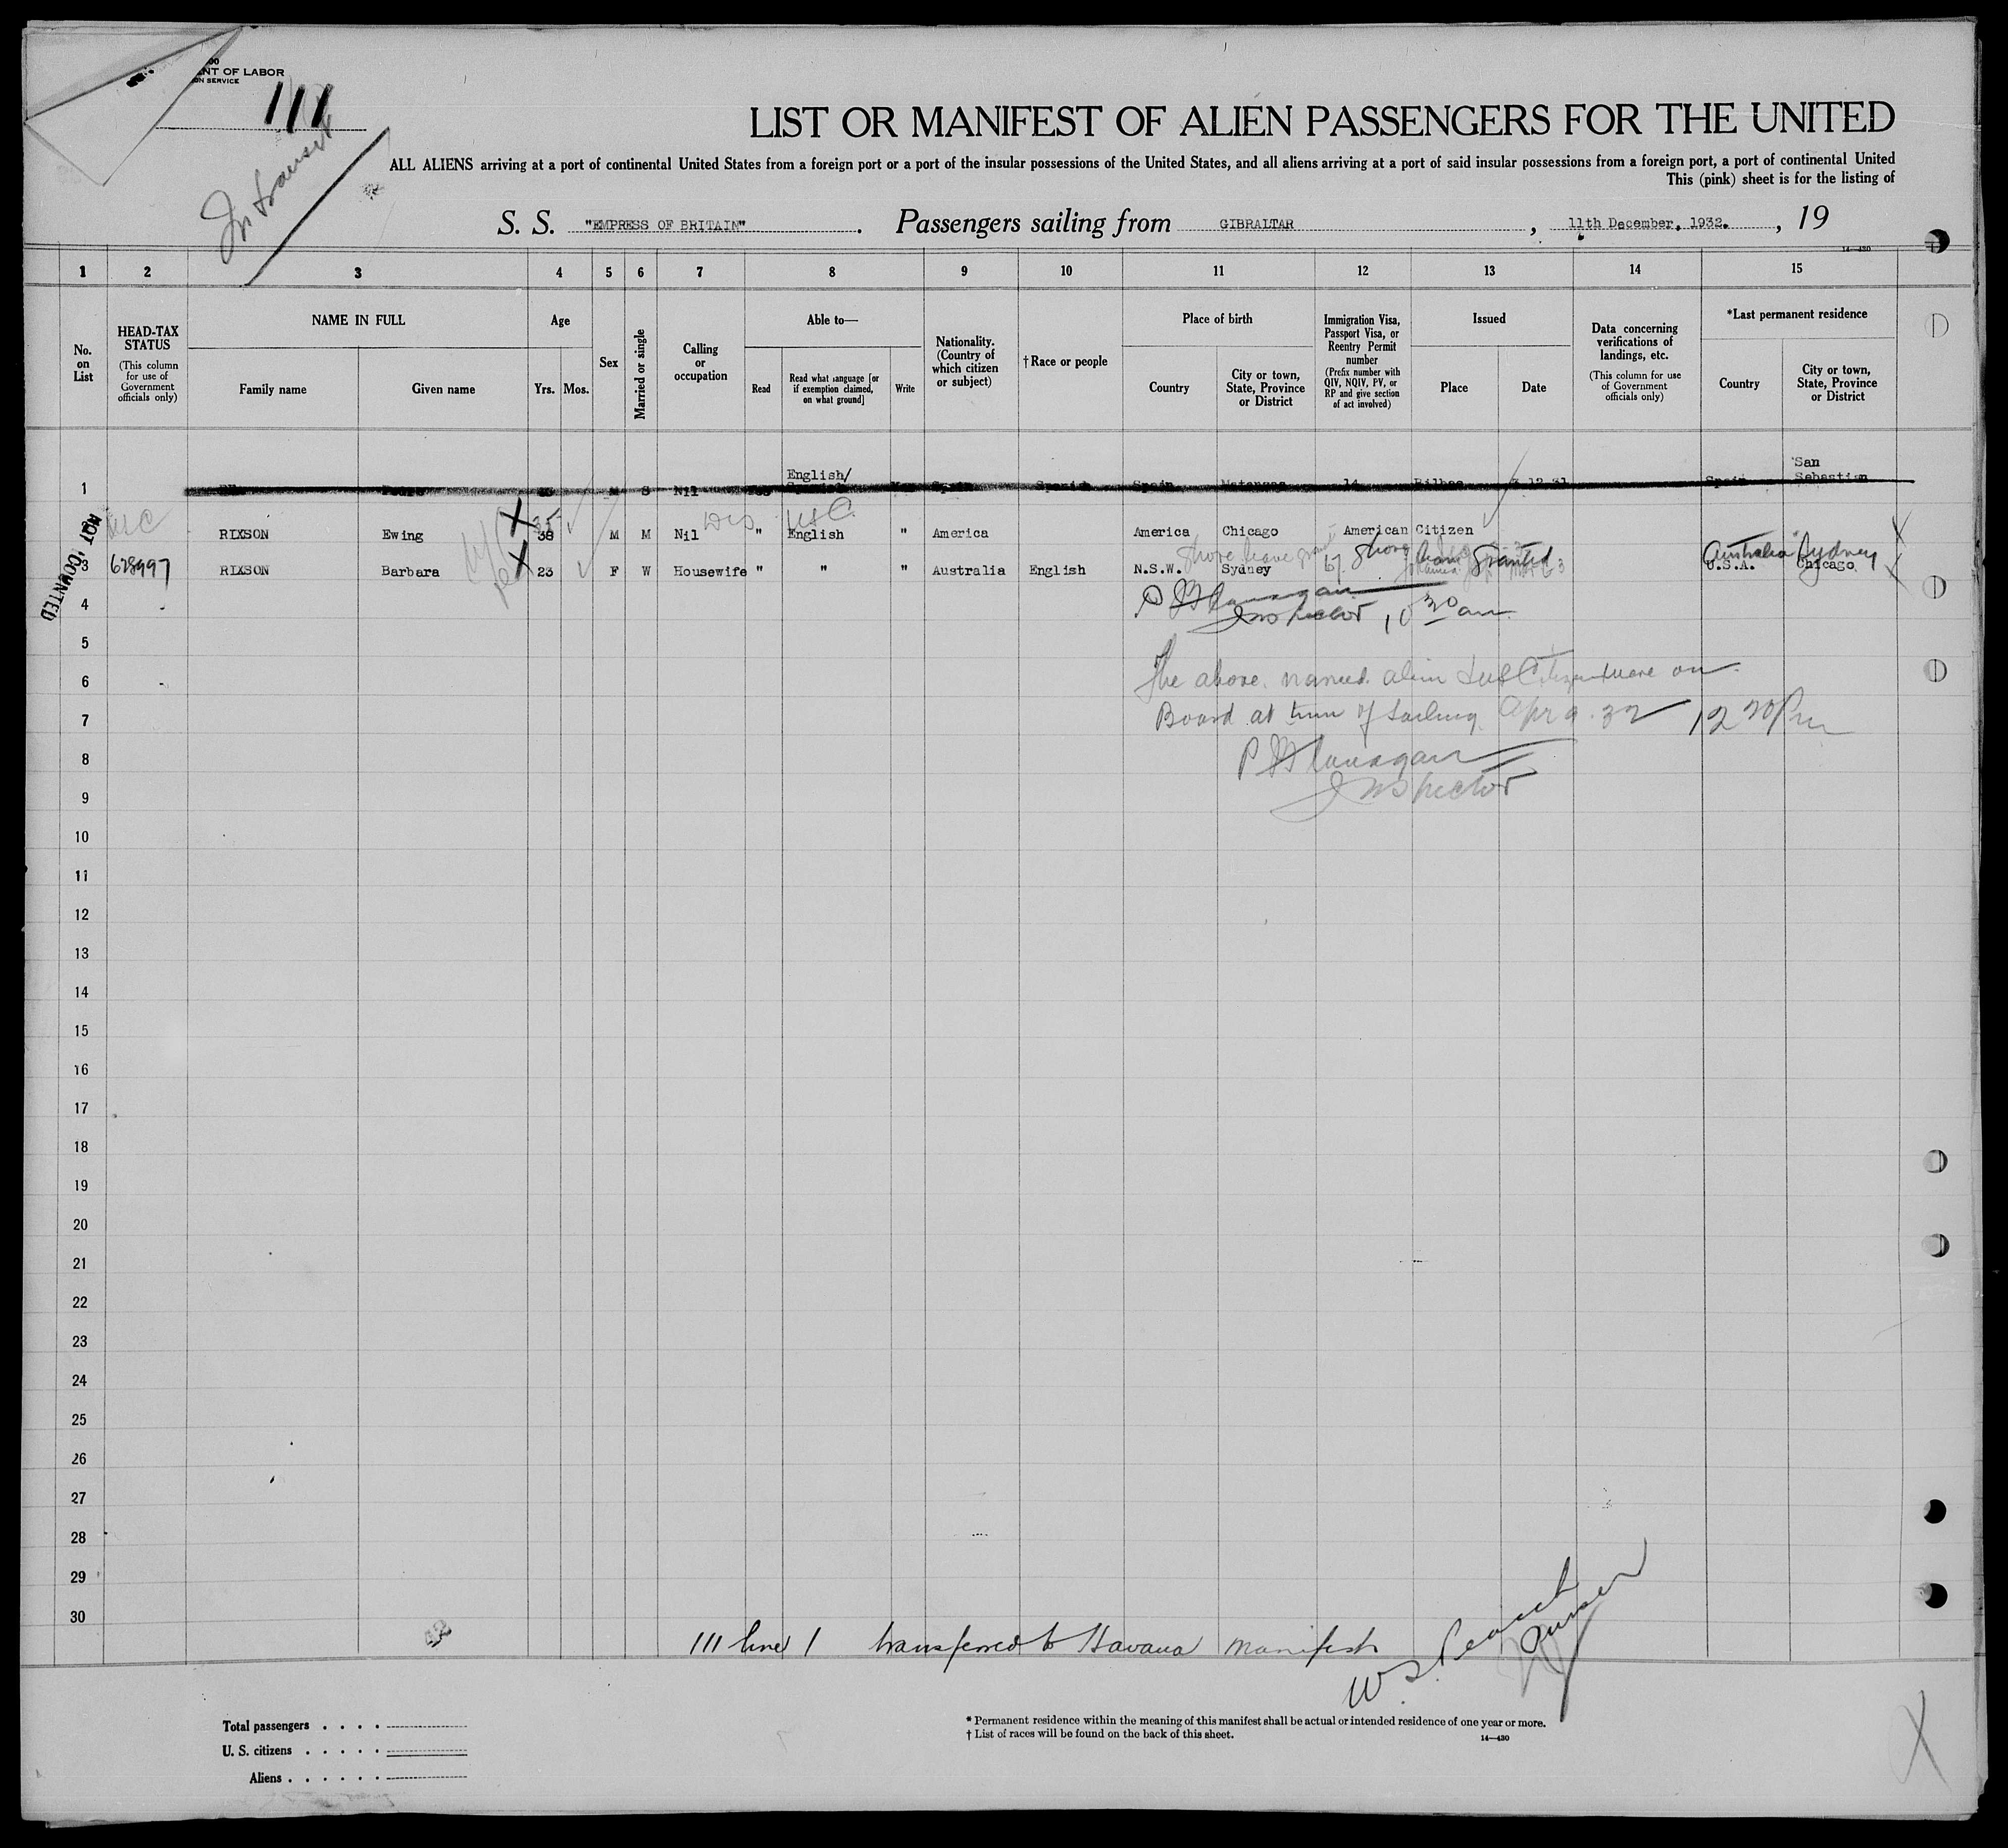 NT OF LABOR
ON SERVICE
111
In transit
LIST OR MANIFEST OF ALIEN PASSENGERS FOR THE UNITED
ALL ALIENS arriving at a port of continental United States from a foreign port or a port of the insular possessions of the United States, and all aliens arriving at a port of said insular possessions from a foreign port, a port of continental United
This (pink) sheet is for the listing of
S. S. "EMPRESS OF BRITAIN". Passengers sailing from GIBRALTAR, 11th December, 1932., 19
14—430
1 2 3 4 5 6 7 8 9 10 11 12 13 14 15
No. on List
HEAD-TAX STATUS
(This column for use of Government officials only)
NAME IN FULL
Family name
Given name
Age
Yrs. Mos.
Sex
Married or single
Calling or occupation
Able to—
Read
Read what language [or if exemption claimed, on what ground]
Write
Nationality. (Country of which citizen or subject)
†Race or people
Place of birth
Country
City or town, State, Province or District
Immigration Visa, Passport Visa, or Reentry Permit number
(Prefix number with QIV, NQIV, PV, or RP and give section of act involved)
Issued
Place
Date
Data concerning verifications of landings, etc.
(This column for use of Government officials only)
*Last permanent residence
Country
City or town, State, Province or District
1 Pedro M S Nil Yes English/ Spanish Yes Spain Spanish Spain Matanzas 14 Bilbao 12.31 Spain San Sebastian
USC RIXSON Ewing 38 35 M M Nil " English USC " America America Chicago American Citizen Australia Sydney
3 628997 RIXSON Barbara 23 F W Housewife " " " Australia English N.S.W. Sydney U.S.A. Chicago
NOT COUNTED
Shore leave granted
P Flanagan
Inspector 10 30 am
4
5
6 The above named alien & US Citizen were on
7 Board at time of sailing Apr 9. 32 12 20 Pm
8 P Flanagan
9 Inspector
10
11
12
13
14
15
16
17
18
19
20
21
22
23
24
25
26
27
28
29
30
111 line 1 transferred to Havana Manifest
Purser
Total passengers . . . .
U. S. citizens . . . . .
Aliens . . . . . .
* Permanent residence within the meaning of this manifest shall be actual or intended residence of one year or more.
† List of races will be found on the back of this sheet.
14—430